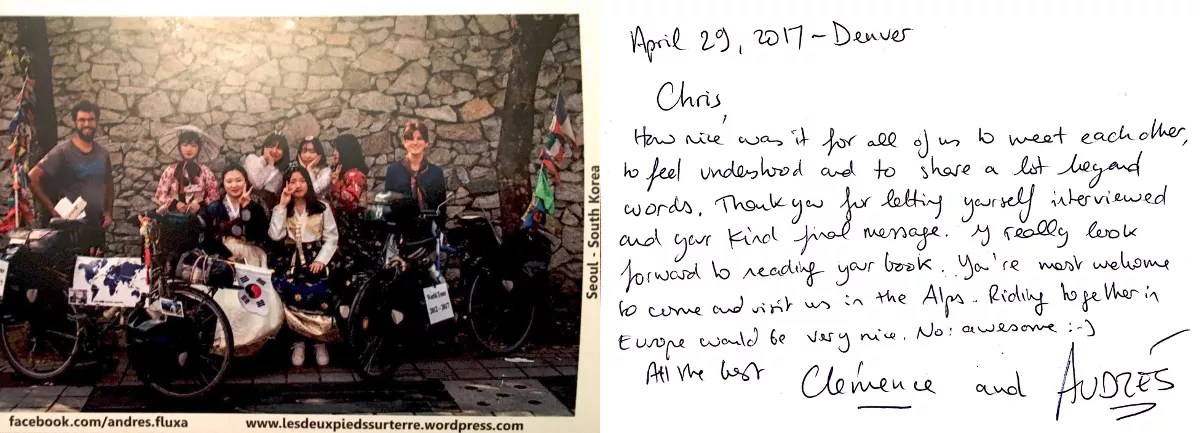 Seoul - South Korea
World Tour
2012 - 2017
facebook.com/andres.fluxa
www.lesdeuxpiedssurterre.wordpress.com
April 29, 2017 ~ Denver
Chris,
How nice was it for all of us to meet each other,
to feel understood and to share a lot beyond
words. Thank you for letting yourself interviewed
and your kind final message. I really look
forward to reading your book. You're most welcome
to come and visit us in the Alps. Riding together in
Europe would be very nice. No: awesome :-)
All the best
Clémence and ANDRÉS